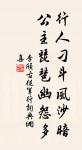 行人刁斗風沙暗
公主琵琶幽怨多
李頎古從軍行詞典網
喜